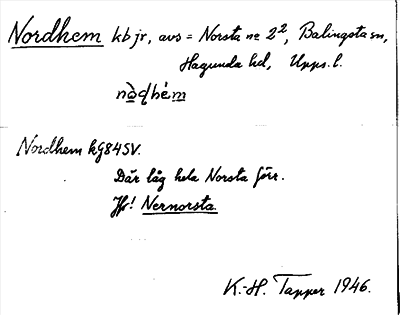 Nordhem kbjr, avs = Norsta nr 2², Balingsta sn,
Hagunda hd, Upps. l.
nòqhèm
Nordhem kg 84 SV.
Där låg hela Norsta förr.
Jfr! Nernorsta.
K.-H. Tapper 1946.